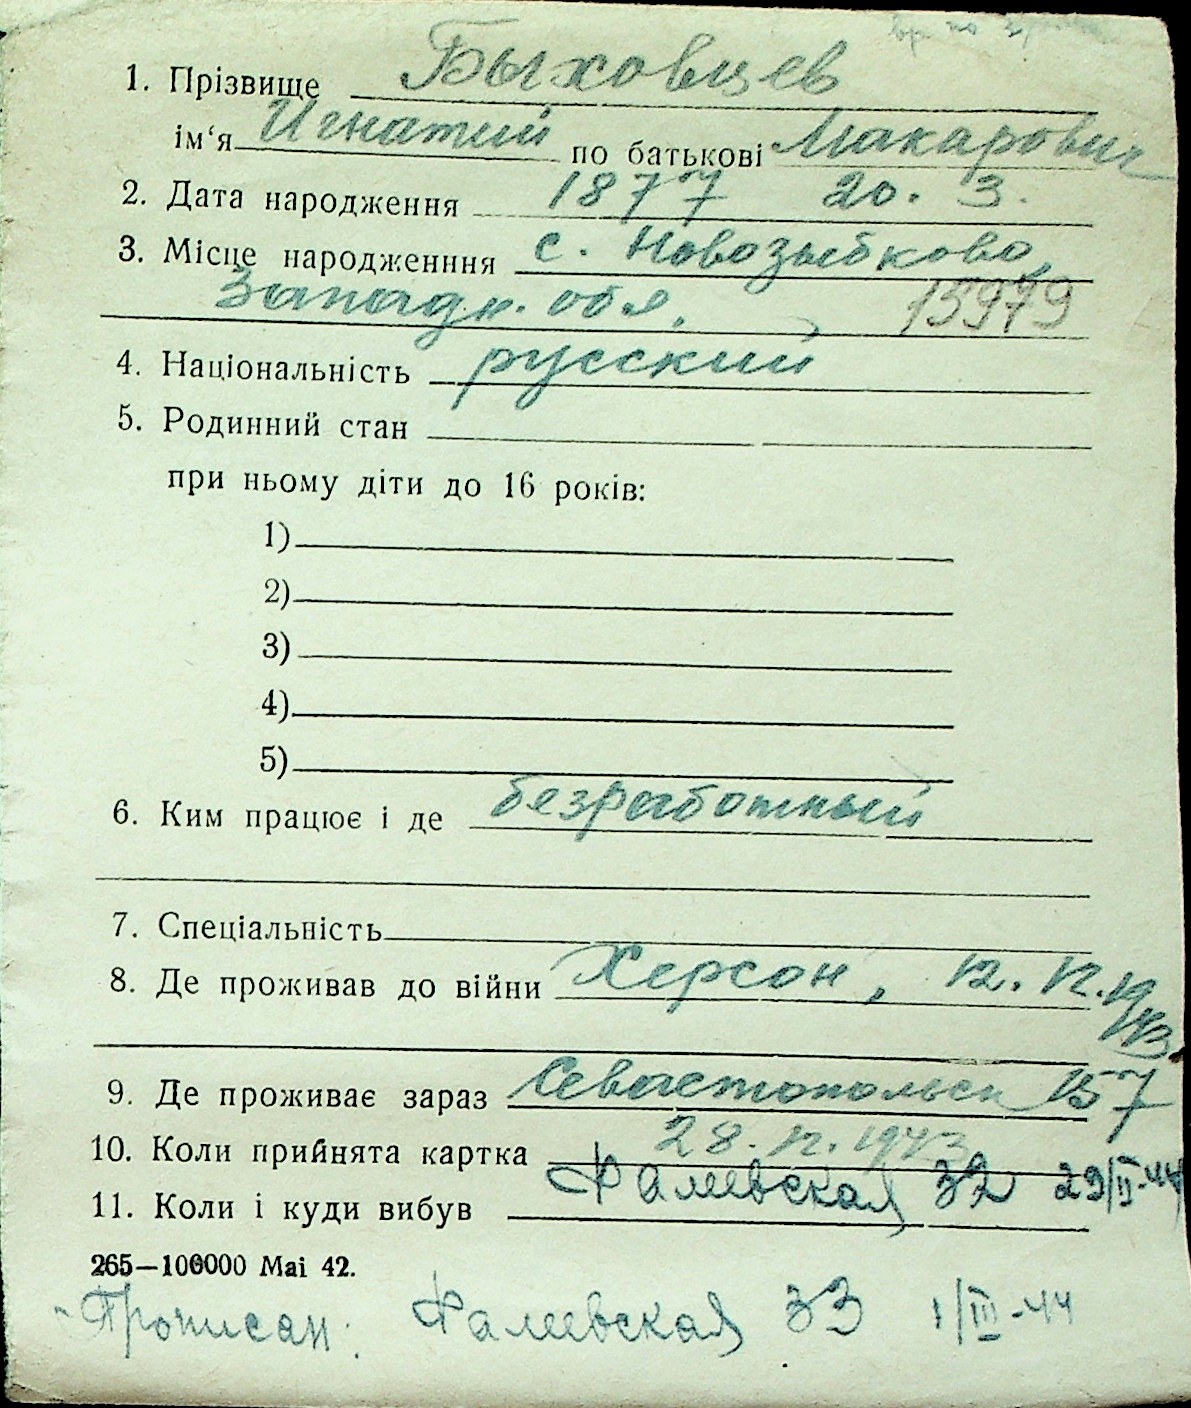 1. Прізвище Быховцев
ім‘я Игнатий по батькові Макарович
2. Дата народження 1877 20. 3.
3. Місце народженння с. Новозыбково,
Западн. обл. 13979
4. Національність русский
5. Родинний стан
при ньому діти до 16 років:
1)
2)
3)
4)
5)
6. Ким працює і де безработный
7. Спеціальність
8. Де проживав до війни Херсон, 12. 12. 19
43
9. Де проживає зараз Севастопольск 157
10. Коли прийнята картка 28. 12. 1943
11. Коли і куди вибув Фалеевская 32 29/II-44
265—100000 Mai 42.
Прописан: Фалеевская 33 1/III-44